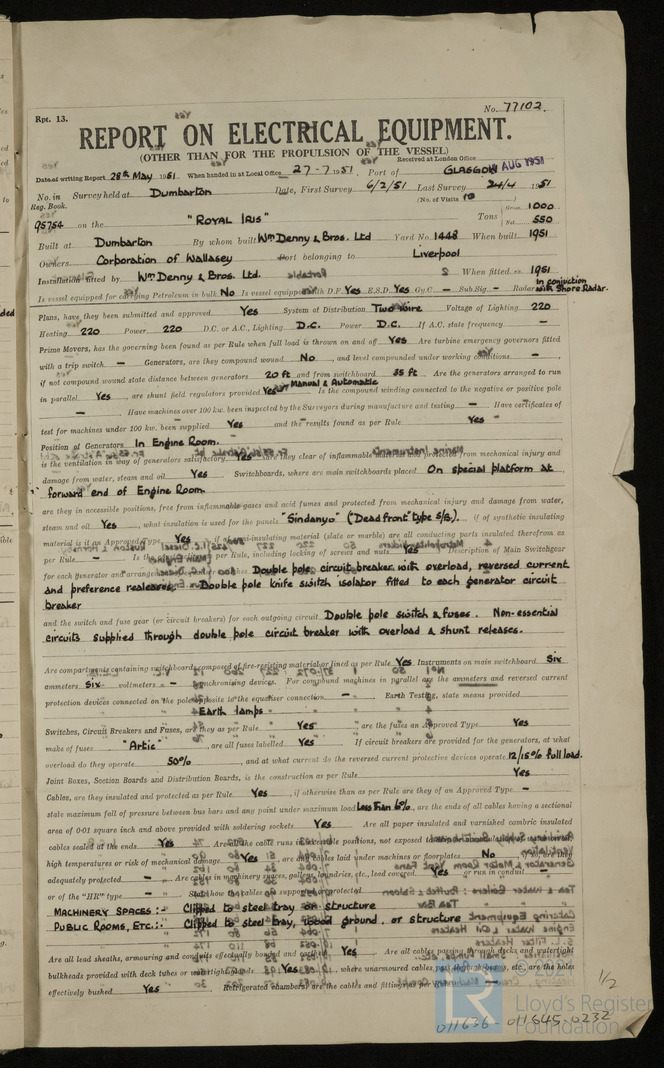 No. 77102.
Rpt. 13.
REPORT ON ELECTRICAL EQUIPMENT.
(OTHER THAN FOR THE PROPULSION OF THE VESSEL)
Received at London Office 14 AUG 1951
Date of writing Report 28th May 1951. When handed in at Local Office 27-7-1951. Port of GLASGOW
No. in Reg. Book. Survey held at Dumbarton Date, First Survey 6/2/51 Last Survey 24/4 1951
(No. of Visits 10
95754 on the "ROYAL IRIS" Tons Gross 1000 Net 550
Built at Dumbarton By whom built Wm Denny & Bros. Ltd Yard No. 1448 When built 1951
Owners Corporation of Wallasey Port belonging to Liverpool
Installation fitted by Wm Denny & Bros. Ltd. When fitted 1951
Is vessel equipped for carrying Petroleum in bulk No Is vessel equipped with D.F. Yes E.S.D. Yes Gy.C. — Sub.Sig — Radar in conjuction with Shore Radar.
Plans, have they been submitted and approved Yes System of Distribution Two wire Voltage of Lighting 220
Heating 220 Power 220 D.C. or A.C., Lighting D.C. Power D.C. If A.C. state frequency —
Prime Movers, has the governing been found as per Rule when full load is thrown on and off Yes Are turbine emergency governors fitted
with a trip switch — Generators, are they compound wound No, and level compounded under working conditions —,
if not compound wound state distance between generators 20 ft and from switchboard 35 ft Are the generators arranged to run
in parallel Yes, are shunt field regulators provided Yes Manual & Automatic Is the compound winding connected to the negative or positive pole
— Have machines over 100 kw. been inspected by the Surveyors during manufacture and testing — Have certificates of
test for machines under 100 kw. been supplied Yes and the results found as per Rule Yes
Position of Generators In Engine Room.
is the ventilation in way of generators satisfactory Yes are they clear of inflammable material and protected from mechanical injury and
damage from water, steam and oil Yes Switchboards, where are main switchboards placed On special platform at
forward end of Engine Room.
are they in accessible positions, free from inflammable gases and acid fumes and protected from mechanical injury and damage from water,
steam and oil Yes, what insulation is used for the panels "Sindanyo" ("Dead front" type S/B)., if of synthetic insulating
material is it an Approved Type Yes, if of semi-insulating material (slate or marble) are all conducting parts insulated therefrom as
per Rule — Is the construction as per Rule, including locking of screws and nuts Yes Description of Main Switchgear
for each generator and arrangement Double pole circuit breaker with overload, reversed current
and preference realeases. Double pole knife switch isolator fitted to each generator circuit
breaker
and the switch and fuse gear (or circuit breakers) for each outgoing circuit Double pole switch & fuses. Non-essential
circuits supplied through double pole circuit breaker with overload & shunt releases.
Are compartments containing switchboards composed of fire-resisting material or lined as per Rule Yes Instruments on main switchboard Six
ammeters Six voltmeters — synchronising devices. For compound machines in parallel are the ammeters and reversed current
protection devices connected on the pole opposite to the equaliser connection — Earth Testing, state means provided
Earth lamps
Switches, Circuit Breakers and Fuses, are they as per Rule Yes, are the fuses an Approved Type Yes
make of fuses "Artic", are all fuses labelled Yes If circuit breakers are provided for the generators, at what
overload do they operate 50%, and at what current do the reversed current protective devices operate 12/15% full load.
Joint Boxes, Section Boards and Distribution Boards, is the construction as per Rule Yes
Cables, are they insulated and protected as per Rule Yes, if otherwise than as per Rule are they of an Approved Type —
state maximum fall of pressure between bus bars and any point under maximum load Less than 6%, are the ends of all cables having a sectional
area of 0·01 square inch and above provided with soldering sockets Yes Are all paper insulated and varnished cambric insulated
cables sealed at the ends Yes Are all the cable runs in accessible positions, not exposed to
high temperatures or risk of mechanical damage Yes, are any cables laid under machines or floorplates No, if so, are they
adequately protected — Are cables in machinery spaces, galleys, laundries, etc., lead covered Yes or run in conduit —
or of the "HR" type — State how the cables are supported or protected
MACHINERY SPACES:- Clipped to steel tray on structure
PUBLIC ROOMS, ETC.:- Clipped to steel tray, wood ground, or structure
Are all lead sheaths, armouring and conduits effectually bonded and earthed Yes Are all cables passing through decks and watertight
bulkheads provided with deck tubes or watertight glands Yes, where unarmoured cables pass through beams, etc., are the holes
effectively bushed Yes Refrigerated chambers, are the cables and fittings as per
1/2
© 2021
LR Lloyd's Register Foundation
011636-011645-0232